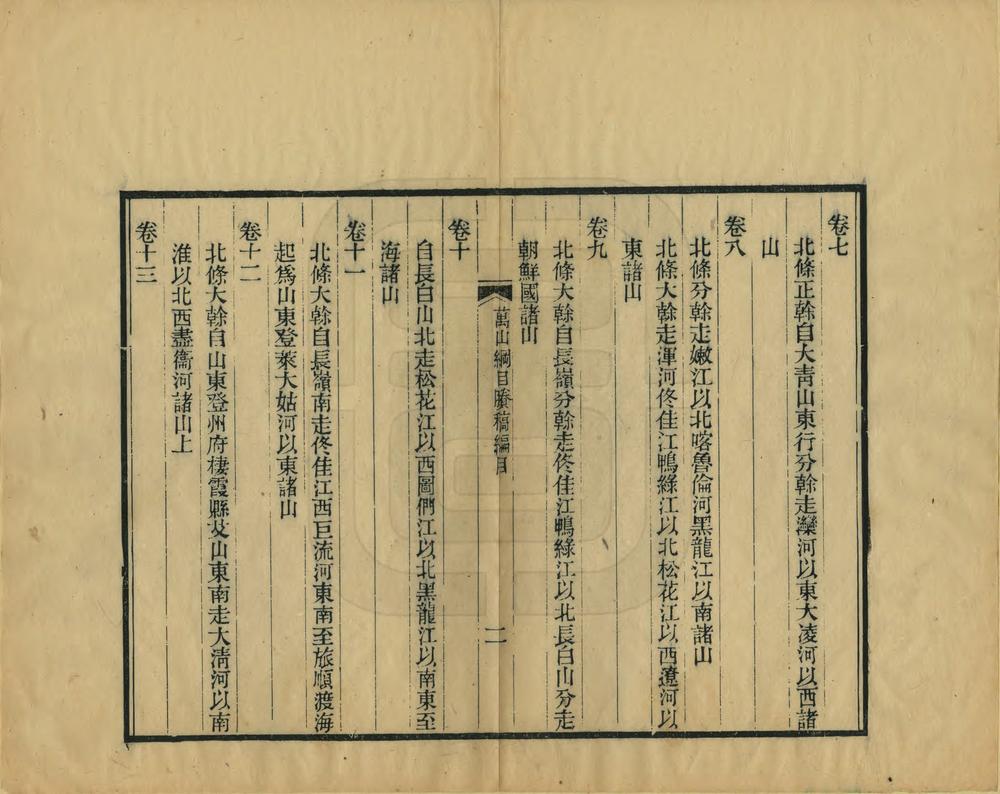 卷七
北條正榦自大青山東行分榦走灤河以東大凌河以西諸
山
卷八
北條分榦走嫩江以北喀魯倫河黑龍江以南諸山
北條大榦走渾河佟佳江鴨綠江以北松花江以西遼河以
東諸山
卷九
北條大榦自長嶺分榦走佟佳江鴨綠江以北長白山分走
朝鮮國諸山
萬山綱目賸稿編目
二
卷十
自長白山北走松花江以西圖們江以北黑龍江以南東至
海諸山
卷十一
北條大榦自長嶺南走佟佳江西巨流河東南至旅順渡海
起爲山東登萊大姑河以東諸山
卷十二
北條大榦自山東登州府棲霞縣艾山東南走大清河以南
淮以北西盡衞河諸山上
卷十三